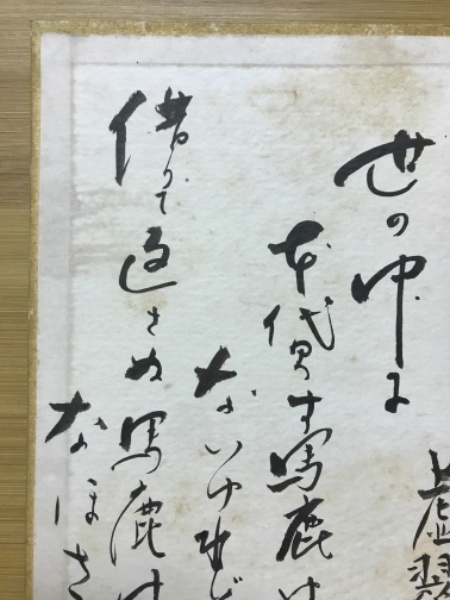 世の中に
本貸す馬鹿は
ないけれど
借りて返さぬ馬鹿は
なほさ